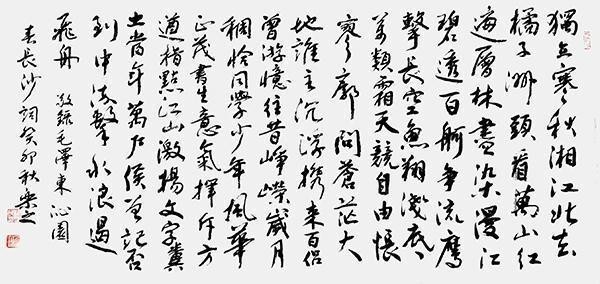 獨立寒秋湘江北去
橘子洲頭看萬山红
遍層林盡染漫江
碧透百舸争流鷹
擊長空魚翔淺底
萬類霜天競自由悵
寥廓問蒼茫大
地誰主沉浮携来百侣
曾游憶往昔崢嶸歲月
稠恰同學少年風華
正茂書生意氣揮斥方
遒指點江山激揚文字糞
土當年萬户侯曾記否
到中流擊水浪遏
飛舟 敬録毛澤東沁園
春長沙詞癸卯秋